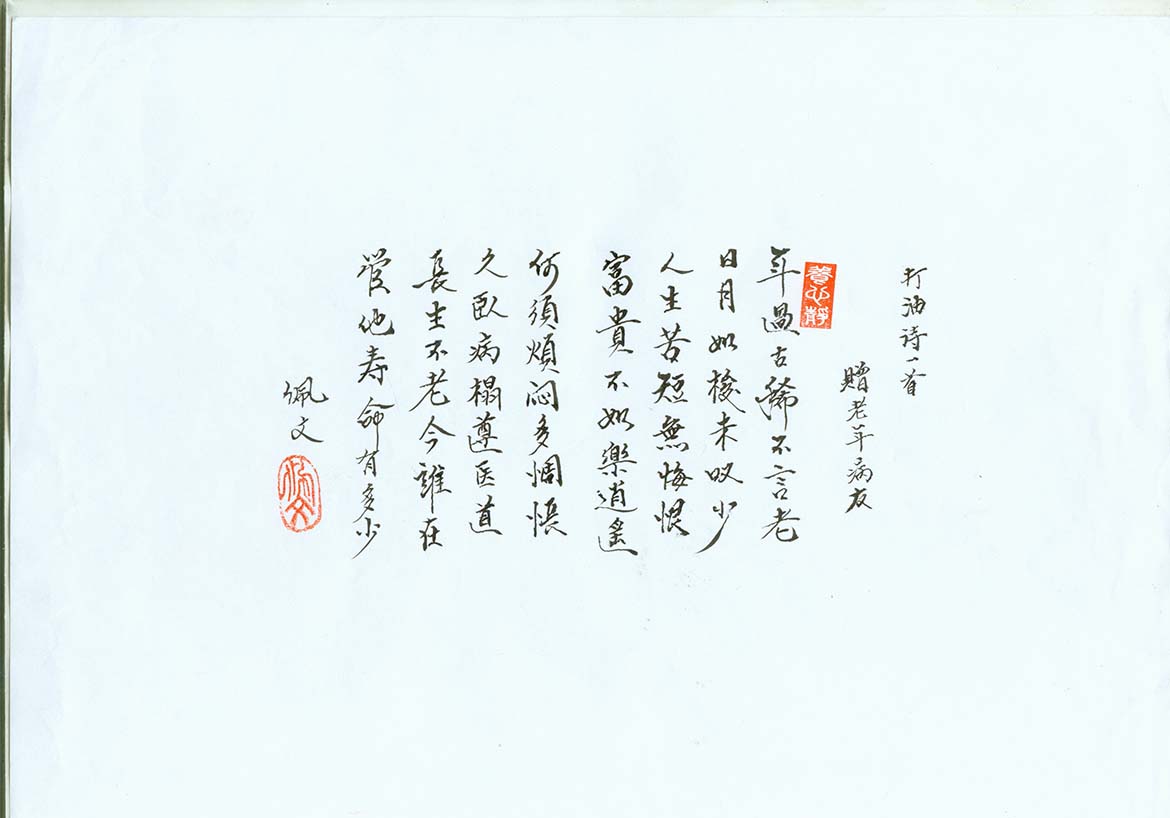 打油诗一首
贈老年病友
養心靜
年過古稀不言老
日月如梭未叹少
人生苦短無悔恨
富貴不如樂逍遙
何須煩闷多惆悵
久臥病榻遵医道
長生不老今誰在
管他寿命有多少
佩文
佩文